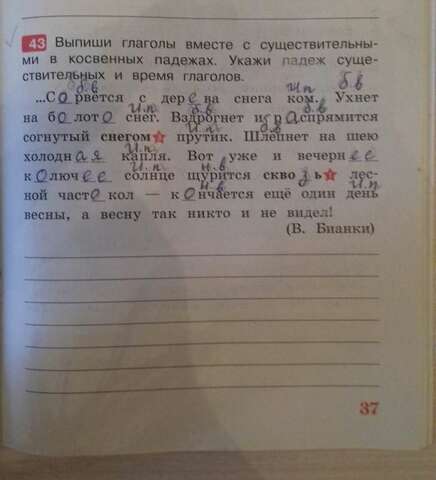 43 Выпиши глаголы вместе с существительны-
ми в косвенных падежах. Укажи падеж суще-
ствительных и время глаголов.
б.в И.п б.в
...Сорвётся с дерева снега ком. Ухнет
И.п. б.в
на болото снег. Вздрогнет и распрямится
И.п. б.в
согнутый снегом прутик. Шлепнет на шею
И.п.
холодная капля. Вот уже и вечернее
И.п. н.в
колючее солнце щурится сквозь лес-
н.в И.п
ной частокол — кончается ещё один день
весны, а весну так никто и не видел!
(В. Бианки)
37